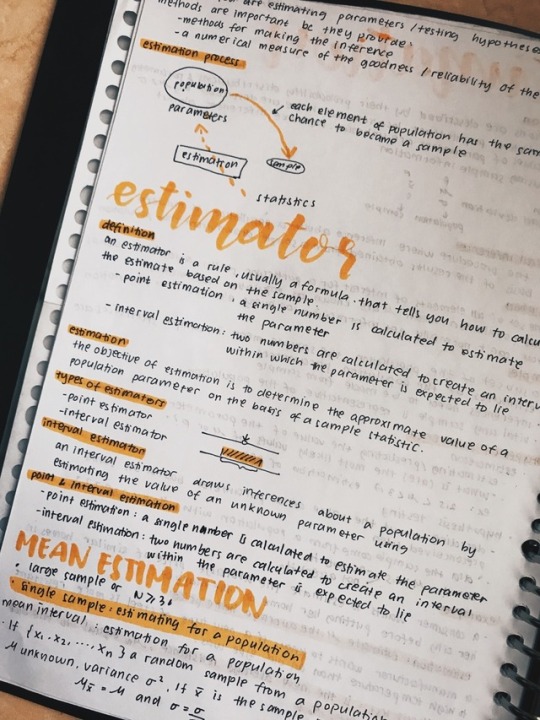 are estimating parameters / testing hypotheses
methods are important bc they provide:
- methods for making the inference
- a numerical measure of the goodness / reliability of the
estimation process
population
parameters
each element of population has the sam
chance to became a sample
estimation
sample
statistics
estimator
definition
an estimator is a rule, usually a formula, that tells you how to calcu
the estimate based on the sample.
- point estimation : a single number is calculated to estimate
the parameter
- interval estimation: two numbers are calculated to create an interv
within which the parameter is expected to lie
estimation
the objective of estimation is to determine the approximate value of a
population parameter on the basis of a sample statistic.
types of estimators
- point estimator
- interval estimator
interval estimator
an interval estimator draws inferences about a population by
estimating the value of an unknown parameter using
point & interval estimation
- point estimation : a single number is calculated to estimate the parameter
- interval estimation: two numbers are calculated to create an interval
within the parameter is expected to lie
MEAN ESTIMATION
• large sample or n ≥ 30
• single sample: estimating for a population
mean interval estimation for a population
• If {x₁, x₂, ..., xₙ} a random sample from a population
μ unknown, variance σ², if x̄ is the sample
μx̄ = μ and σ = σ